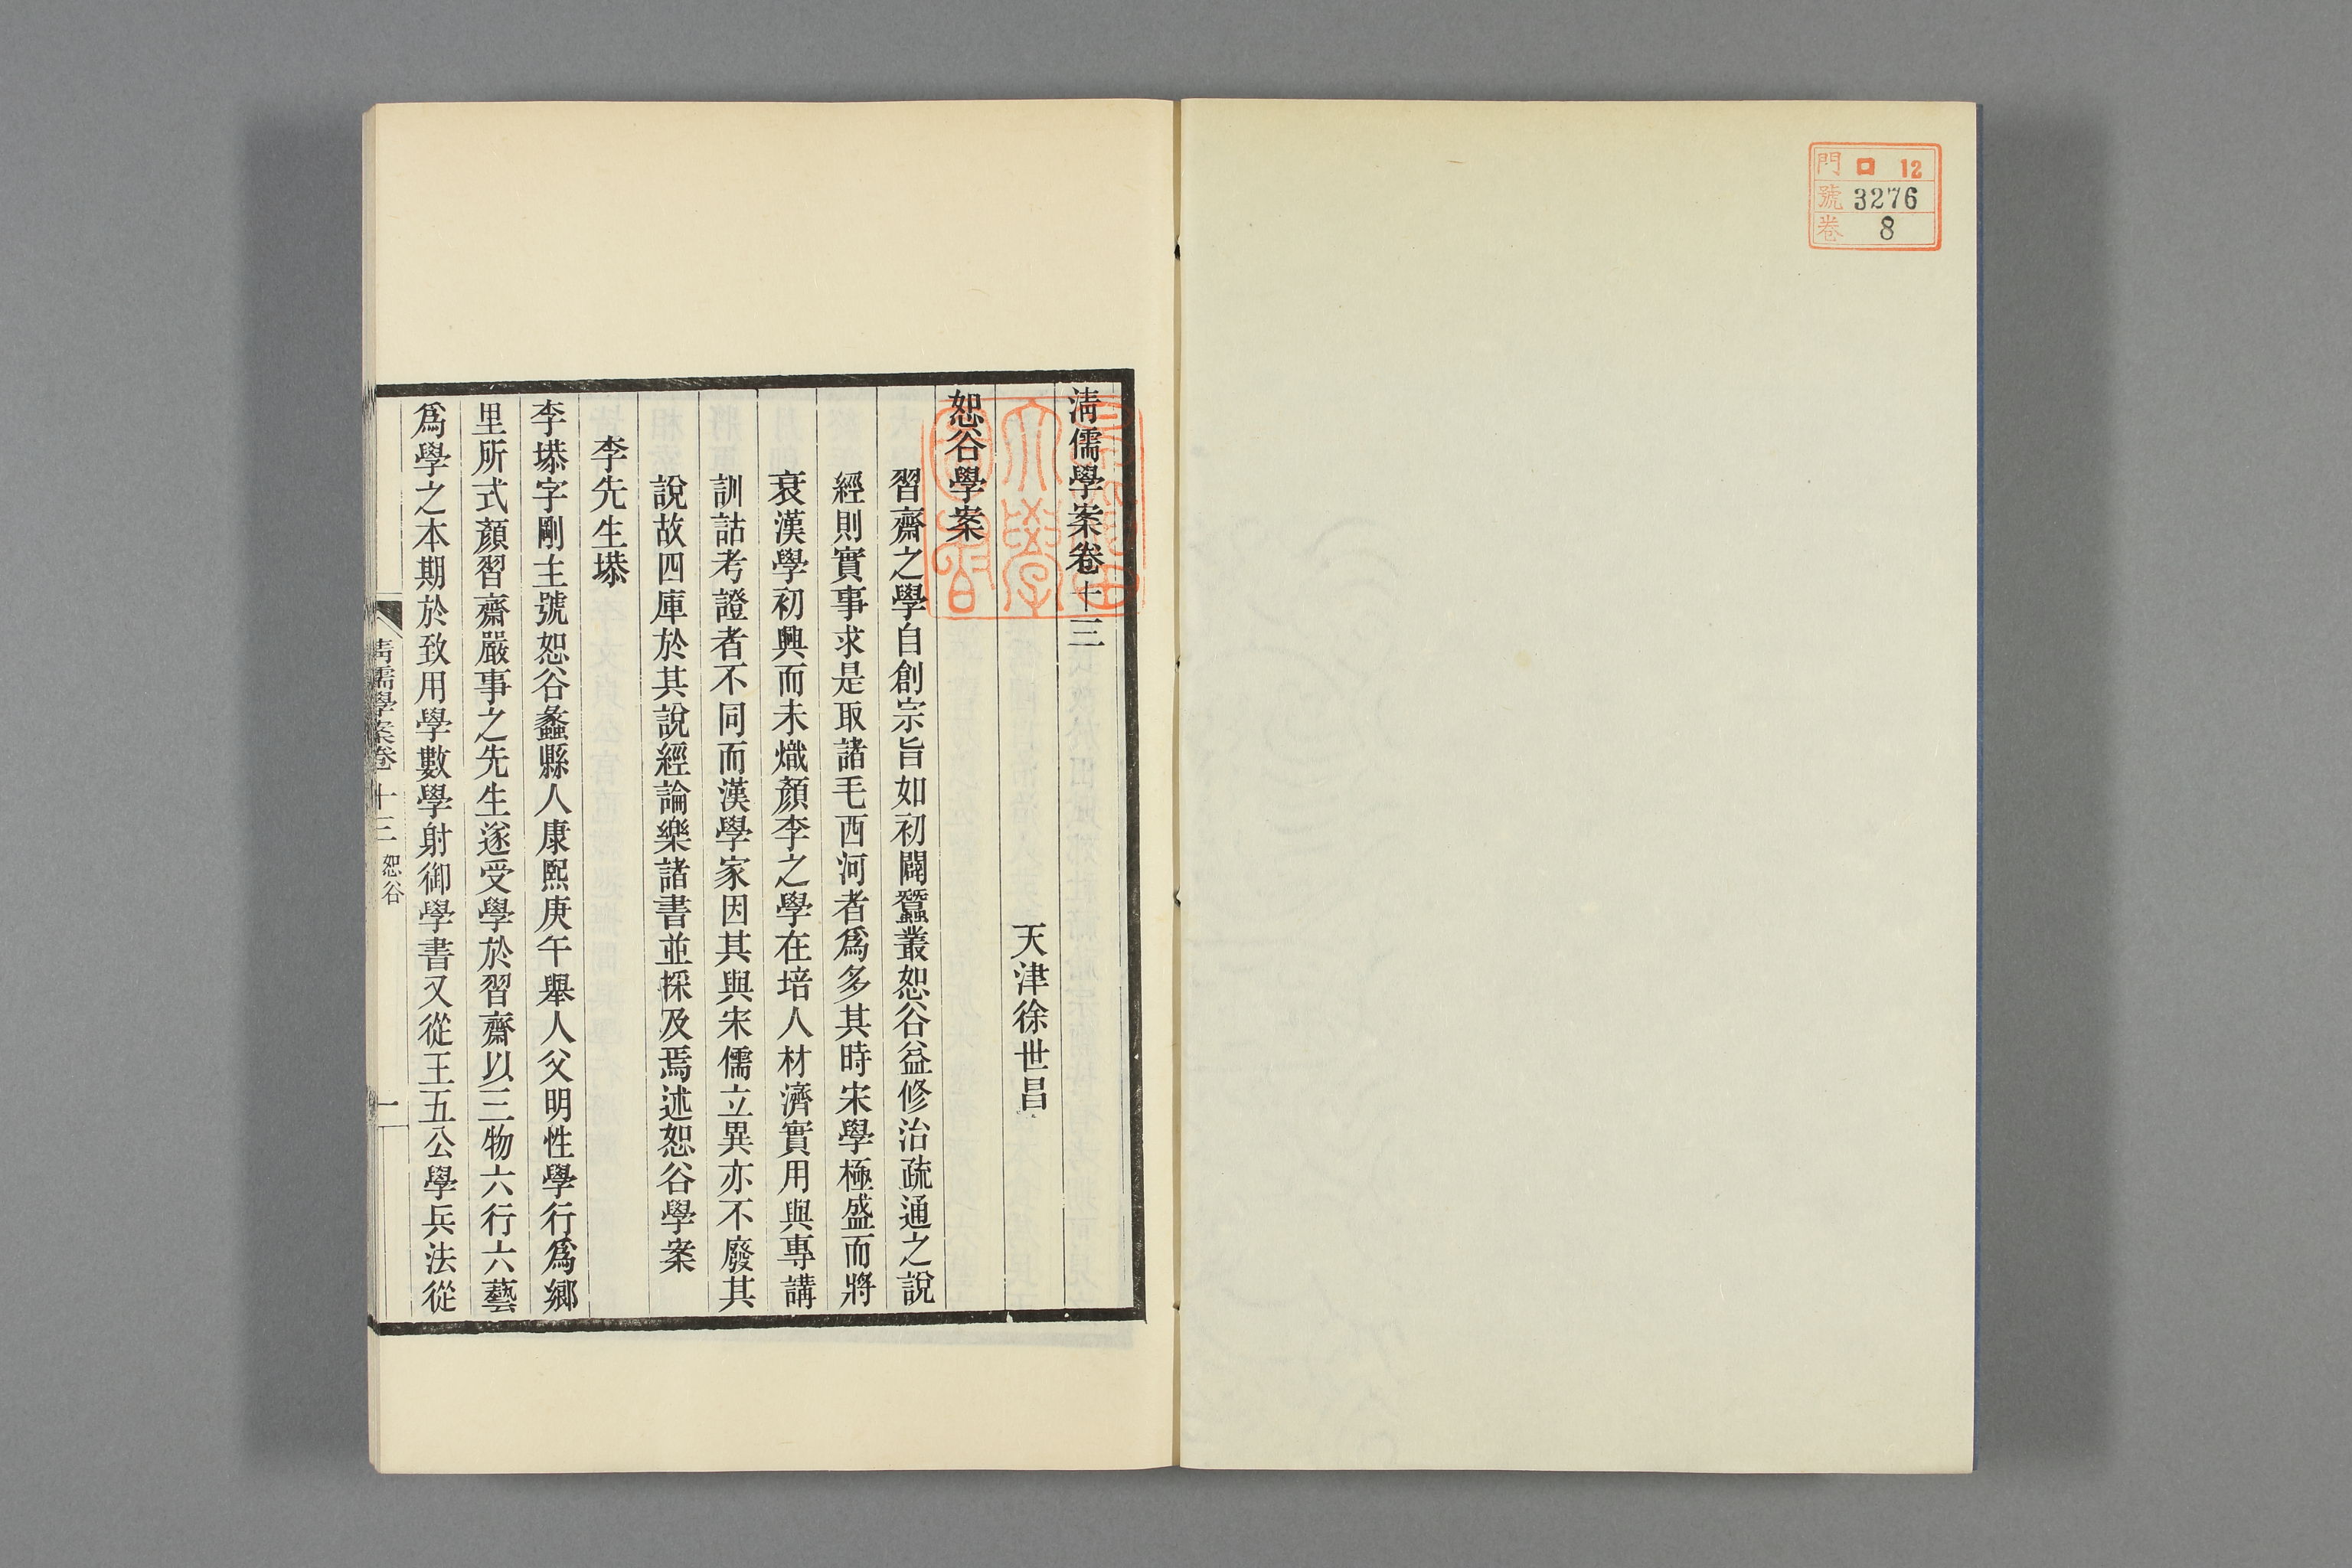 門 ロ 12
號 3276
卷 8
淸儒學案卷十三
天津徐世昌
恕谷學案
習齋之學自創宗旨如初闢蠶叢恕谷益修治疏通之說
經則實事求是取諸毛西河者爲多其時宋學極盛而將
衰漢學初興而未熾顏李之學在培人材濟實用與專講
訓詁考證者不同而漢學家因其與宋儒立異亦不廢其
說故四庫於其說經論樂諸書並採及焉述恕谷學案
李先生塨
李塨字剛主號恕谷蠡縣人康熙庚午舉人父明性學行爲鄉
里所式顏習齋嚴事之先生遂受學於習齋以三物六行六藝
爲學之本期於致用學數學射御學書又從王五公學兵法從
淸儒學案卷十三 恕谷 一